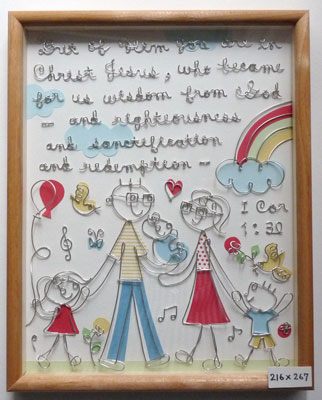 But of Him you are in
Christ Jesus, who became
for us wisdom from God
— and righteousness
and sanctification
and redemption —
I Cor
1:30
216 x 267